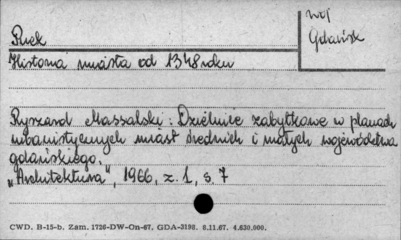 Puck
woj
Gdańsk
Historia miasta od 1348 roku
Ryszard Massalski: Dzielnice zabytkowe w planach
urbanistycznych miast średnich i małych województwa
gdańskiego.
"Architektura", 1966, z. 1, s. 7
CWD. B-15-b. Zam. 1726-DW-On-67. GDA-3190. 8.11.67. 4.630.000.